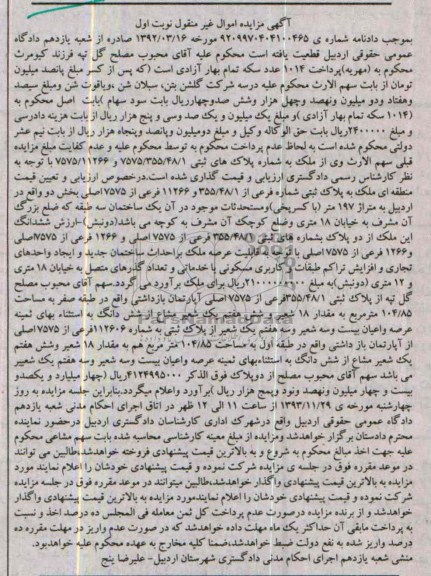 آگهی مزایده اموال غیر منقول نوبت اول
بموجب دادنامه شماره ی ۹۲۰۹۹۷۰۴۰۴۱۰۰۴۶۵ مورخه ۱۳۹۲/۰۳/۱۶ صادره از شعبه یازدهم دادگاه
عمومی حقوقی اردبیل قطعیت یافته است محکوم علیه آقای محبوب مصلح گل تپه فرزند کیومرث
محکوم به (مهریه)پرداخت ۱۰۱۴ عدد سکه تمام بهار آزادی است (که پس از کسر مبلغ پانصد میلیون
تومان از بابت سهم الارث محکوم علیه درسه شرکت گلشن بتن، سبلان شن ،ویاقوت شن ومبلغ سیصد
وهفتاد ودو میلیون ونهصد وچهل هزار وشش صدوچهارریال بابت سود سهام )بابت اصل محکوم به
(۱۰۱۴ سکه تمام بهار آزادی )و مبلغ یک میلیون و یک صد وسی و پنج هزار ریال از بابت هزینه دادرسی
و مبلغ ۲۴۰۰۰۰۰ریال بابت حق الوکاله وکیل و مبلغ دومیلیون وپانصد وپنجاه هزار ریال از بابت نیم عشر
دولتی محکوم شده است به لحاظ عدم پرداخت محکوم به توسط محکوم علیه و عدم کفایت مبلغ مزایده
قبلی سهم الارث وی از ملک به شماره پلاک های ثبتی ۷۵۷۵/۳۵۵/۴۸/۱ و ۷۵۷۵/۱۱۲۶۶ با توجه به
نظر کارشناس رسمی دادگستری ارزیابی و قیمت گذاری شده است.درخصوص ارزیابی و تعیین قیمت
منطقه ای ملک به پلاک ثبتی شماره فرعی از ۳۵۵/۴۸/۱ و ۱۱۲۶۶ فرعی از ۷۵۷۵اصلی بخش دو واقع در
اردبیل به متراژ ۱۹۷ متر (با کسریخی)ومستحدثات موجود در آن یک ساختمان سه طبقه که ضلع بزرگ
آن مشرف به خیابان ۱۸ متری وضلع کوچک آن مشرف به کوچه می باشد(دونبش)-ارزش ششدانگ
این ملک از دو پلاک بشماره های ثبتی ۳۵۵/۴۸/۱ فرعی از ۷۵۷۵ اصلی و ۱۲۶۶ فرعی از ۷۵۷۵اصلی
و۱۲۶۶ فرعی از ۷۵۷۵ اصلی با توجه به قابلیت عرصه ملک براحداث ساختمان جدید و ایجاد واحدهای
تجاری و افزایش تراکم طبقات و کاربری مسکونی یا خدماتی و تعداد گذرهای متصل به خیابان ۱۸ متری
و ۱۲ متری (دونبش)به مبلغ ریال برای ملک برآورد می گردد.سهم آقای محبوب مصلح
گل تپه از پلاک ثبتی ۳۵۵/۴۸/۱فرعی از ۷۵۷۵ اصلی آپارتمان بازداشتی واقع در طبقه صفر به مساحت
۱۰۴/۸۵ مترمربع به مقدار ۱۸ شعیر و شش هفتم یک شعیر مشاع از شش دانگ به استثناء بهای ثمینه
عرصه واعیان بیست وسه شعیر وسه هفتم یک شعیر از پلاک ثبتی به شماره ۱۱۲۶۰۶فرعی از ۷۵۷۵اصلی
از آپارتمان باز داشتی واقع در طبقه اول به مساحت ۱۰۴/۸۵ متر مربع هم به مقدار ۱۸ شعیر وشش هفتم
یک شعیر مشاع از شش دانگ به استثناءبهای ثمینه عرصه واعیان بیست وسه شعیر وسه هفتم یک شعییر
می باشد سهم آقای محبوب مصلح از دوپلاک فوق الذکر ۴۱۲۴۹۹۵۰۰۰ریال (چهار میلیارد و یکصدو
بیست و چهار میلیون ونهصد ونود وپنج هزار ریال )برآورد واعلام میگردد.بنابراین جلسه مزایده به روز
چهارشنبه مورخه ی ۱۳۹۳/۱۱/۲۹ از ساعت ۱۱ الی ۱۲ ظهر در اتاق اجرای احکام مدنی شعبه یازدهم
دادگاه عمومی حقوقی اردبیل واقع درشهرک اداری کارشناسان دادگستری اردبیل درحضور نماینده
محترم دادستان برگزار خواهدشد ومزایده از مبلغ معینه کارشناسی محاسبه شده بابت سهم مشاعی محکوم
علیه جهت اخذ مبالغ محکوم به شروع و به بالاترین قیمت پیشنهادی فروخته خواهدشد،طالبین می توانند
در موعد مقرره فوق در جلسه ی مزایده شرکت نموده و قیمت پیشنهادی خودشان را اعلام نمایند مورد
مزایده به بالاترین قیمت پیشنهادی واگذار خواهدشد،طالبین میتوانند در موعد مقرره فوق در جلسه مزایده
شرکت نموده و قیمت پیشنهادی خودشان را اعلام نمایندمورد مزایده به بالاترین قیمت پیشنهادی واگذار
خواهدشد و از برنده مزایده درصورت عدم پرداخت کل ثمن معامله فی المجلس ده درصد اخذ و نسبت
به پرداخت مابقی آن حداکثر یک ماه مهلت داده خواهدشد که در صورت عدم واریز در مهلت مقرره ده
درصد واریز شده به نفع دولت ضبط خواهدشد،ضمنا کلیه مخارج به عهده محکوم علیه خواهدبود.
منشی شعبه یازدهم اجرای احکام مدنی دادگستری شهرستان اردبیل- علیرضا پنج